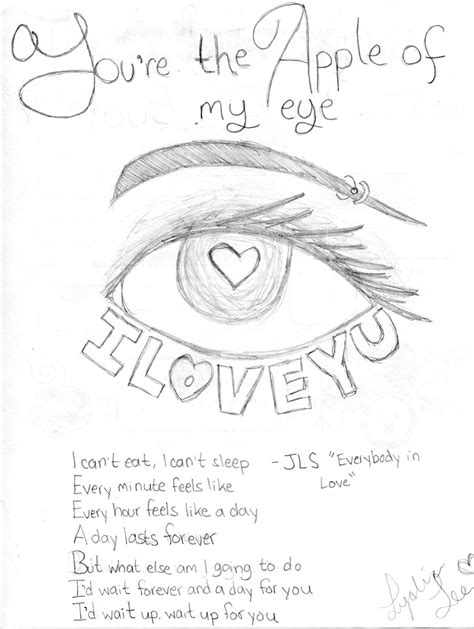 You're the Apple of
my eye
I LOVE YU
I can't eat, I can't sleep - JLS "Everybody in
Every minute feels like Love"
Every hour feels like a day
A day lasts forever
But what else am I going to do
I'd wait forever and a day for you
I'd wait up, wait up for you
Lydia
Lee